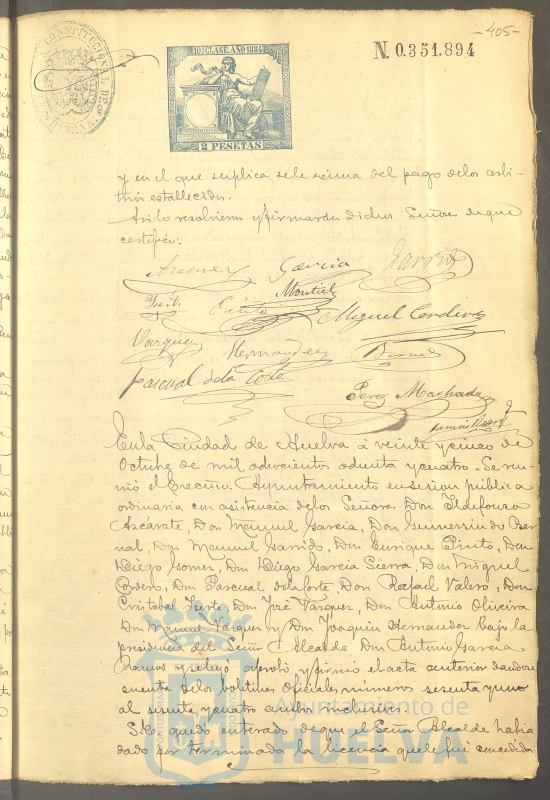 -405-
N. 0.351.894
CONSTITUCIONAL DE
10ª CLASE. AÑO 1884
2 PESETAS
y en el que suplica se le exima del pago de los arbi-
trios establecidos.
Asi lo resolvieron y firmarán dichos Señores de que
certifico:
Garcia Garrido
Montiel
Pinto Miguel Cordero
Vazquez Hernandez Bernal
Pascual de la Corte
Perez Machado
En la Ciudad de Huelva á veinte y cinco de
Octubre de mil ochocientos ochenta y cuatro. Se reu-
nió el Excmo. Ayuntamiento en sesion publica
ordinaria con asistencia de los Señores Don Ildefonso
Azcarate, Don Manuel Garcia, Don Gumersindo Ber-
nal, Don Manuel Garrido, Don Enrique Pinto, Don
Diego Gomez, Don Diego Garcia Sierra, Don Miguel
Cordero, Don Pascual de la Corte, Don Rafael Valero, Don
Cristobal Don José Vazquez, Don Antonio Oliveira
Don Manuel Vazquez y Don Joaquin Hernandez bajo la
presidencia del Señor Alcalde Don Antonio Garcia
Ramos y se leyó aprobó y firmó el acta anterior dandose
cuenta de los boletines oficiales números sesenta y uno
al setenta y cuatro ambos inclusive.
S.E. quedó enterado de que el Señor Alcalde habia
dado por terminada la licencia que le fué concedida
Ayuntamiento de
HUELVA